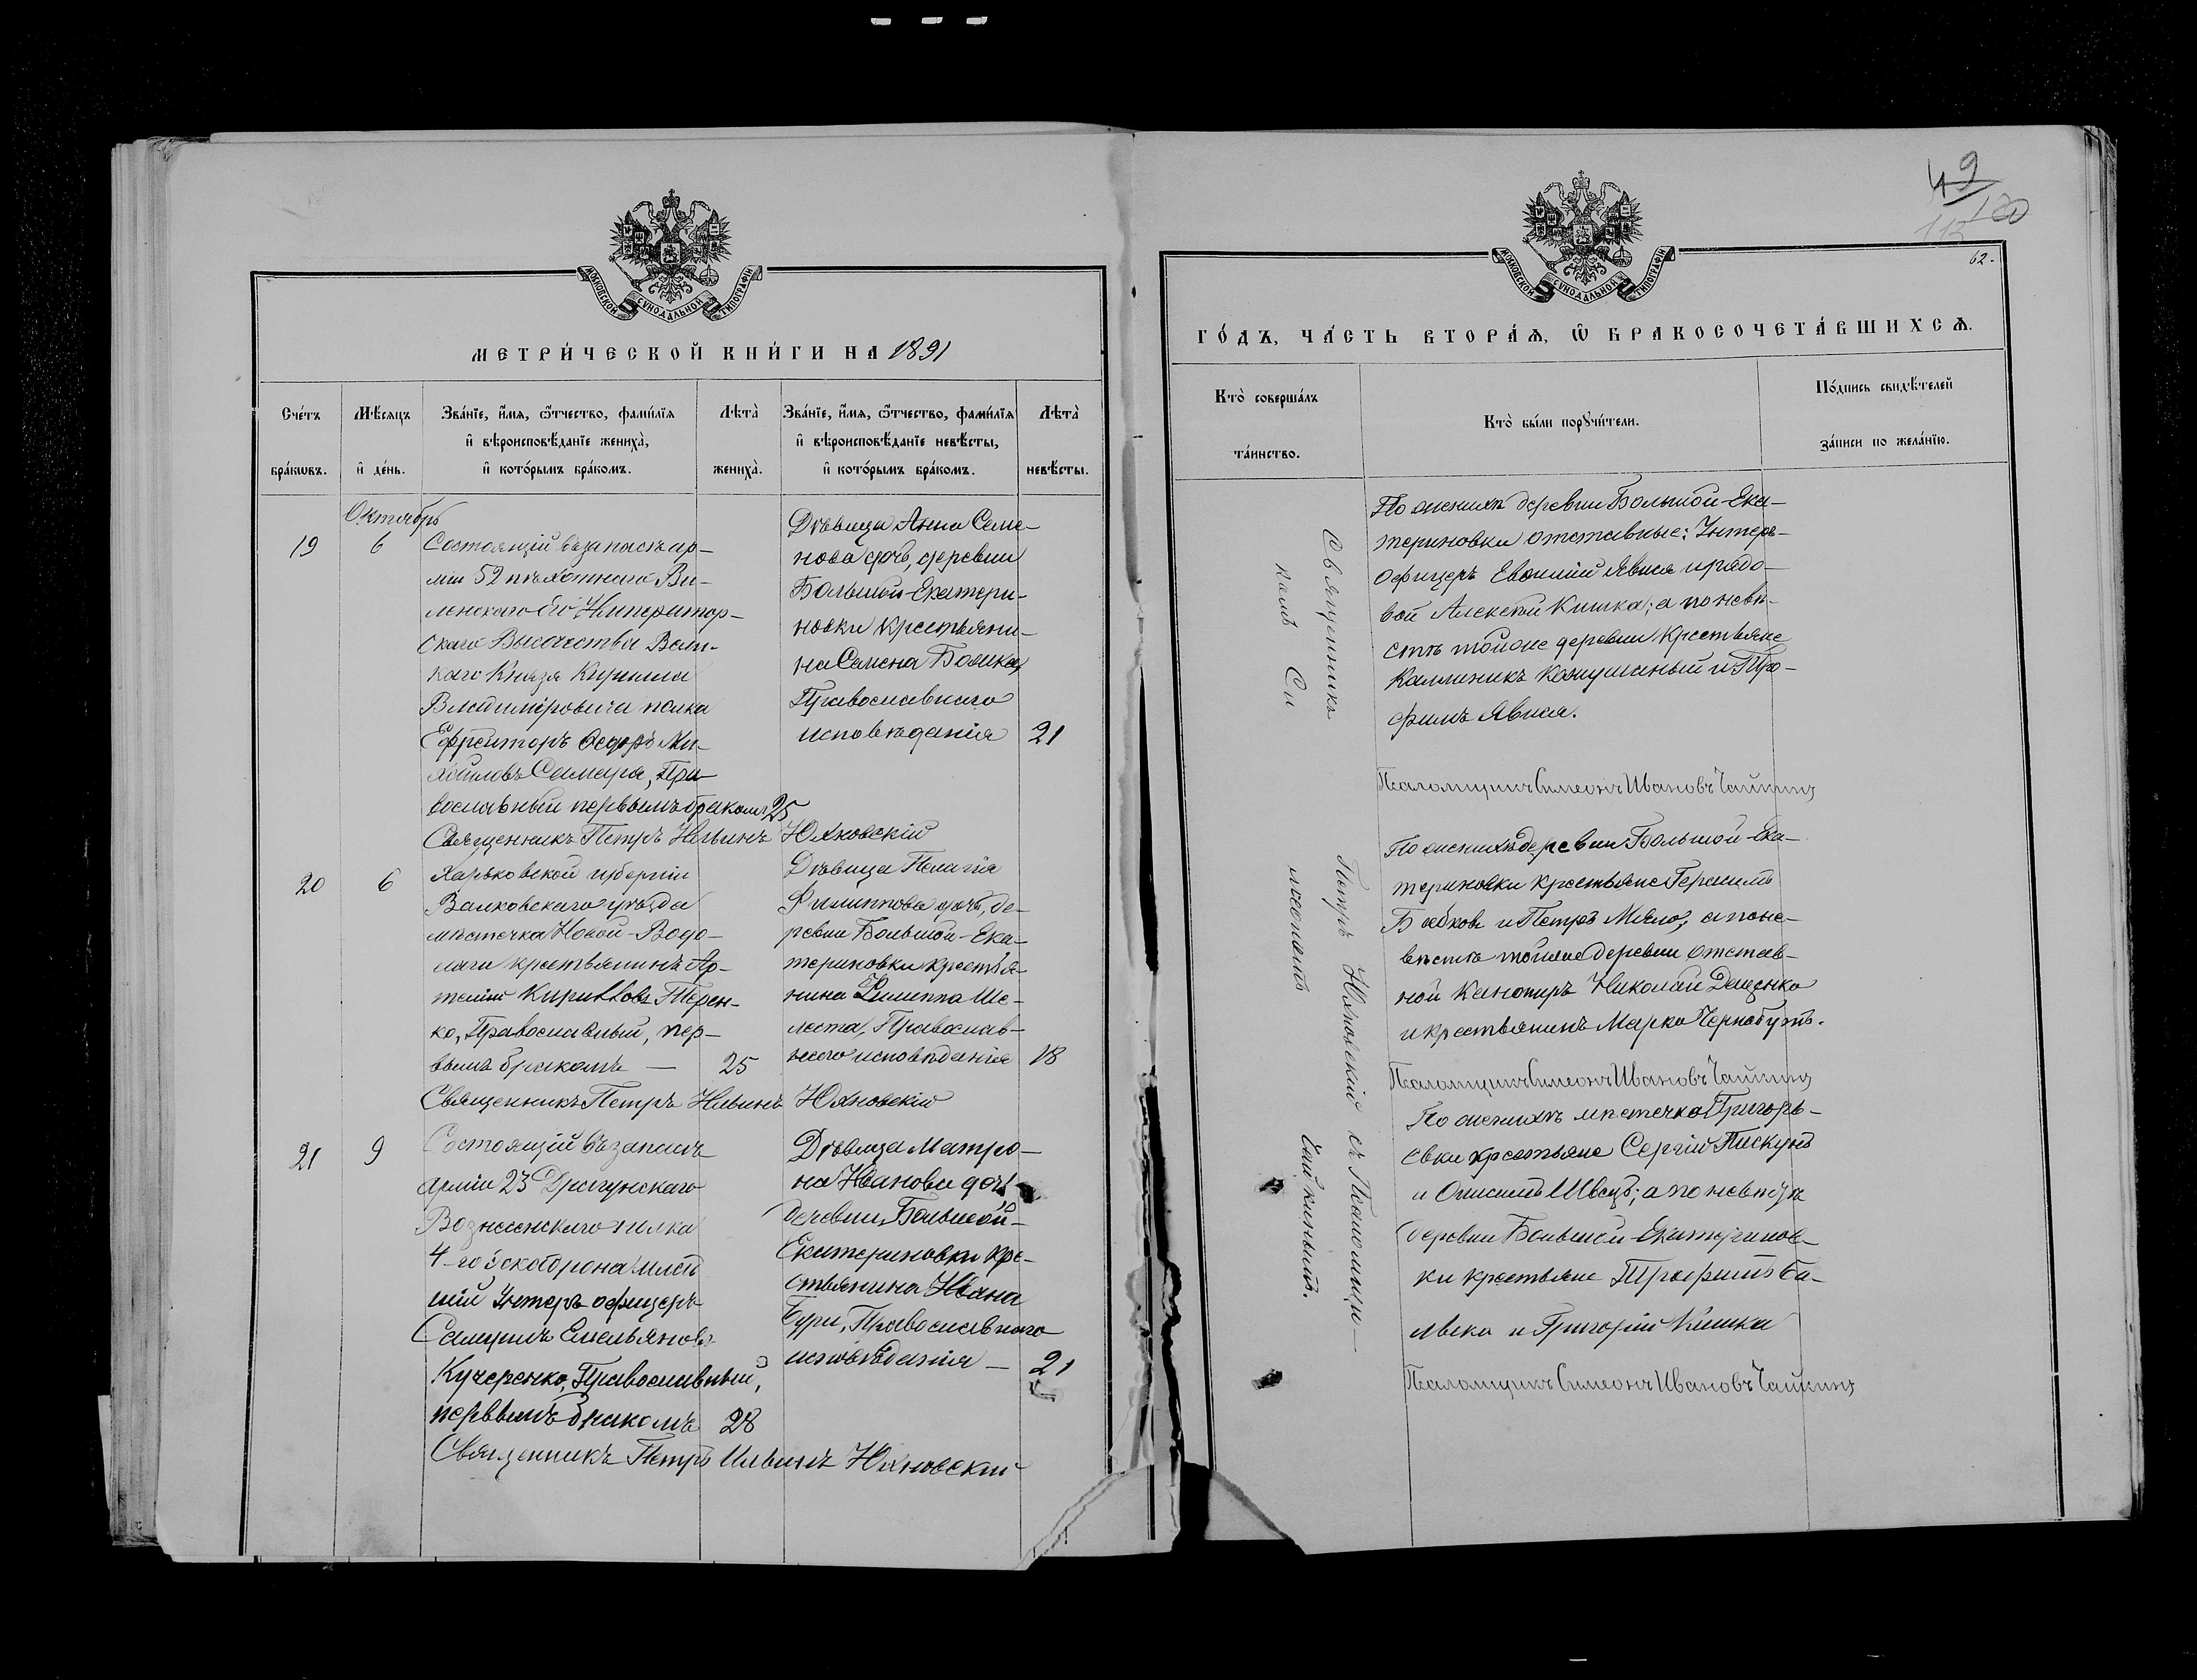 МОСКОВСКОЙ СѴНОДАЛЬНОЙ ТИПОГРАФІИ
МЕТРИ́ЧЕСКОЙ КНИ́ГИ НА 1891
Сче́тъ
бра́кѡвъ.
Мѣ́сяцъ
и҆ де́нь.
Зва́нїе, и҆́мя, ѻ҆́тчество, фамѝлїя
и҆ вѣроисповѣ́данїе жениха̀,
и҆ кото́рымъ бра́комъ.
Лѣта̀
жениха̀.
Зва́нїе, и҆́мя, ѻ҆́тчество, фамѝлїя
и҆ вѣроисповѣ́данїе невѣ́сты,
и҆ кото́рымъ бра́комъ.
Лѣта̀
невѣ́сты.
Октябрь
19
6
Состоящій въ запасѣ ар-
міи 52 пѣхотнаго Ви-
ленскаго Его Император-
скаго Высочества Вели-
каго Князя Кирилла
Владиміровича полка
Ефрейторъ Ѳедоръ Ми-
хайловъ Самара, Пра-
вославный первымъ бракомъ
25
Дѣвица Анна Семе-
нова дочь, деревни
Большой-Екатери-
новки крестьяни-
на Семена Бовика,
Православнаго
исповѣданія
21
Священникъ Петръ Ильинъ Юхновскій
20
6
Харьковской губерніи
Валковскаго уѣзда
мѣстечка Новой-Водо-
лаги крестьянинъ Ар-
темій Кирилловъ Терен-
ко, Православный, пер-
вымъ бракомъ —
25
Дѣвица Пелагія
Филиппова дочь, де-
ревни Большой-Ека-
териновки крестья-
нина Филиппа Ше-
леста, Православ-
наго исповѣданія
18
Священникъ Петръ Ильинъ Юхновскій
21
9
Состоящій въ запасѣ
арміи 23 Драгунскаго
Вознесенскаго полка
4-го эскадрона млад
шій Унтеръ офицеръ
Самуилъ Емельяновъ
Кучеренко, Православный,
первымъ бракомъ
28
Дѣвица Матро-
на Иванова дочь
деревни Большой-
Екатериновки кре-
стьянина Ивана
Бури, Православнаго
исповѣданія —
21
Священникъ Петръ Ильинъ Юхновскій
49
120
115
62-
МОСКОВСКОЙ СѴНОДАЛЬНОЙ ТИПОГРАФІИ
ГО́ДЪ, ЧА́СТЬ ВТОРА́Ѧ, Ѡ҆ БРАКОСОЧЕТА́ВШИХСѦ.
Кто̀ соверша́лъ
та́инство.
Кто̀ бы́ли порꙋчи́тели.
По́дпись свидѣ́телей
за́писи по жела́нїю.
Священникъ Петръ Юхновскій съ Псаломщи-
комъ Си меономъ Чайкинымъ.
По женихѣ деревни Большой-Ека-
териновки отставные: Унтеръ-
Офицеръ Евфимій Явися и рядо-
вой Алексѣй Кишка; а по невѣ-
стѣ той же деревни крестьяне
Каллиникъ и Тро-
фимъ Явися.
Псаломщикъ Симеонъ Ивановъ Чайкинъ
По женихѣ деревни Большой-Ека-
териновки крестьяне Герасимъ
Бабковъ и Петръ Мяло; а по не-
вѣстѣ той же деревни отстав-
ной Канониръ Николай Даценко
и крестьянинъ Марко Чернобукъ.
Псаломщикъ Симеонъ Ивановъ Чайкинъ
По женихѣ мѣстечка Григорь-
евки крестьяне Сергій Пискунъ
и Онисимъ Швецъ; а по невѣстѣ
деревни Большой-Екатеринов-
ки крестьяне Трофимъ
и Григорій Кишка
Псаломщикъ Симеонъ Ивановъ Чайкинъ